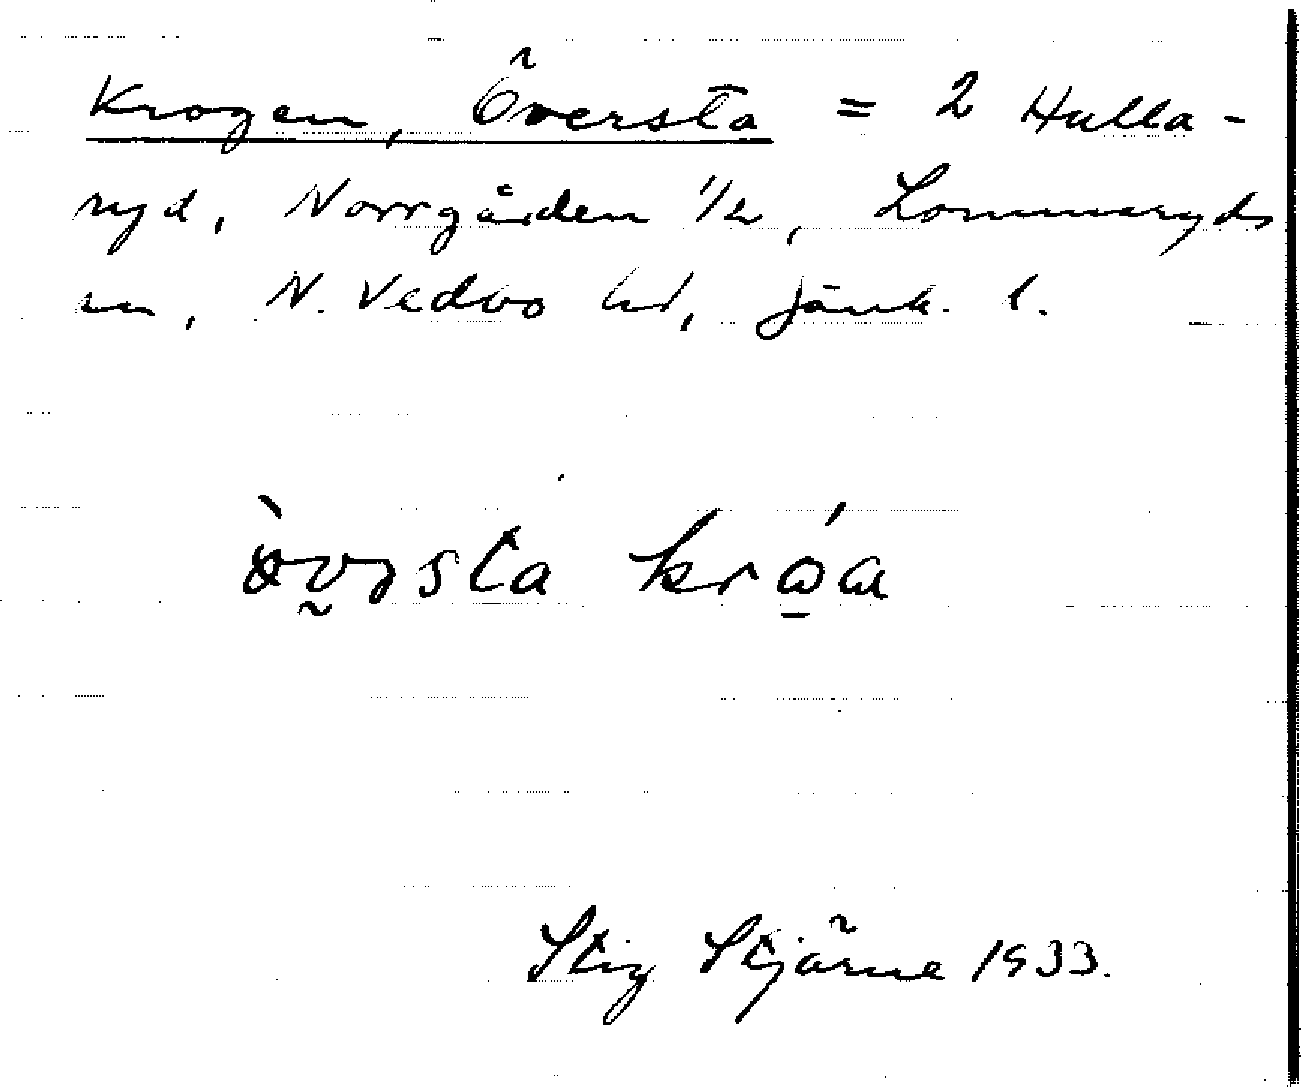 Krogen, Översta = 2 Hulla-
ryd, Norrgården 1/2, Lommaryds
sn, N. Vedbo hd, Jönk. l.
òvəsta króa
Stig Stjärne 1933.